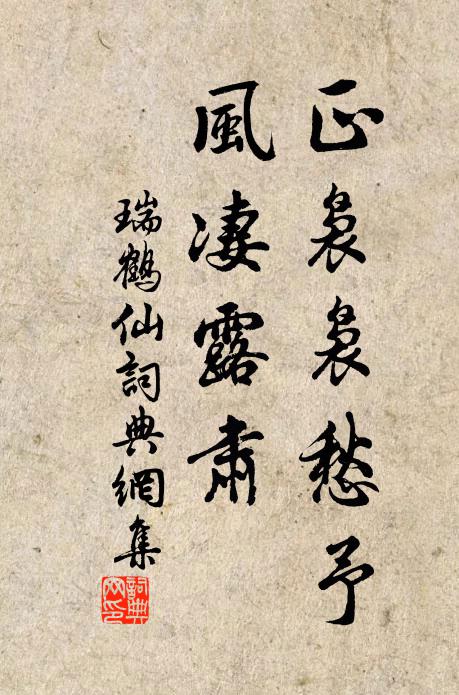 正裊裊愁予
風凄露肅
瑞鶴仙詞典網集
詞典
网印